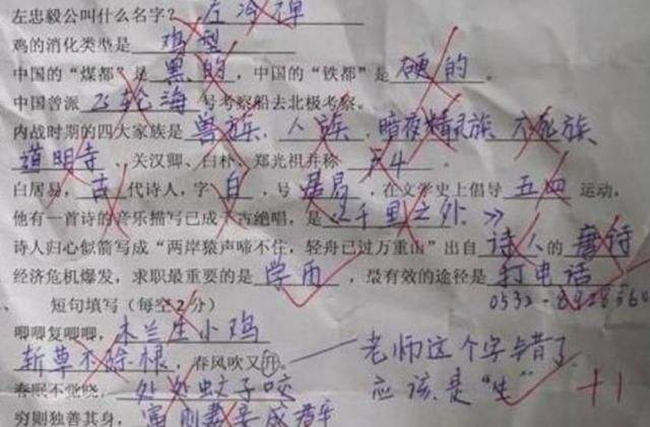 左忠毅公叫什么名字？左冷禅
鸡的消化类型是 鸡型
中国的“煤都”是 黑的，中国的“铁都”是 硬的。
中国曾派 飞轮海 号考察船去北极考察。
内战时期的四大家族是 兽族、人族、暗夜精灵族、不死族、
道明寺、关汉卿、白朴、郑光祖并称 F4。
白居易，古 代诗人，字 白，号 居易，在文学史上倡导 五四 运动，
他有一首诗的音乐描写已成千古绝唱，是《千里之外》
诗人归心似箭写成“两岸猿声啼不住，轻舟已过万重山”出自 诗人的 唐诗
经济危机爆发，求职最重要的是 学历，最有效的途径是 打电话
0532-8928560
短句填写（每空2分）
唧唧复唧唧，木兰生小鸡
斩草不除根，春风吹又开。老师这个字写错了
春眠不觉晓，处处蚊子咬 应该是“生” +1
穷则独善其身，富则妻妾成群